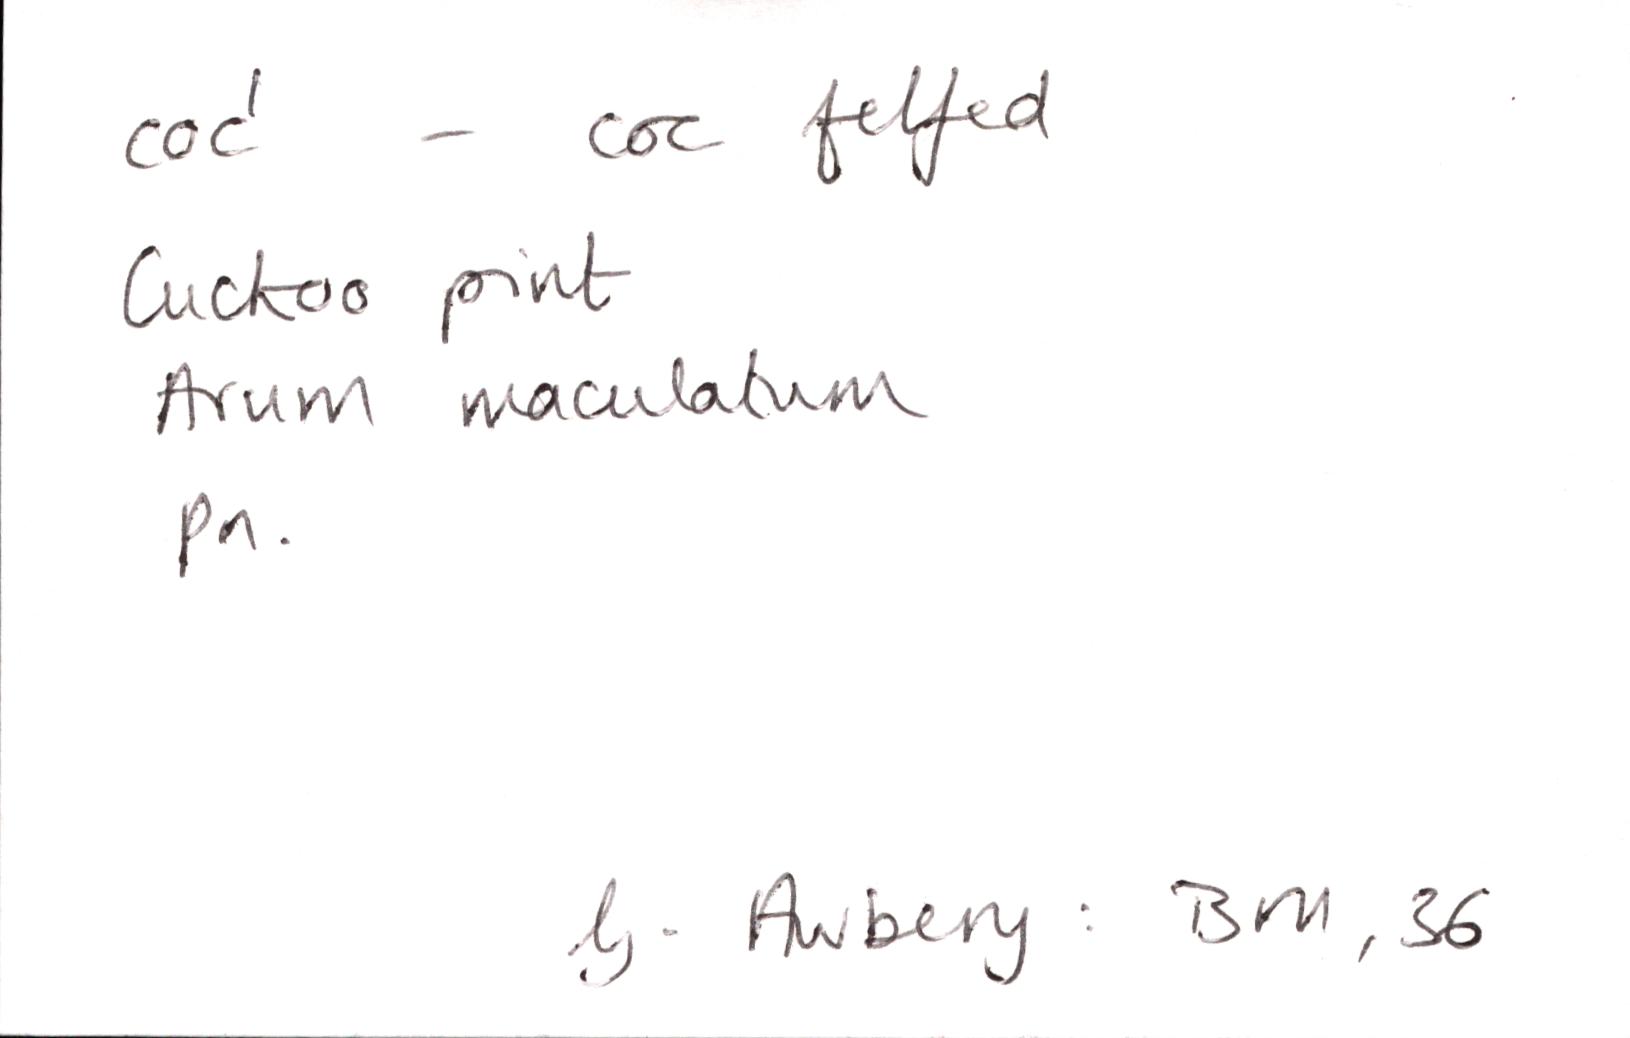 coc' - coc felfed
Cuckoo pint
Arum maculatum
Pn.
G. Awbery: BM, 36